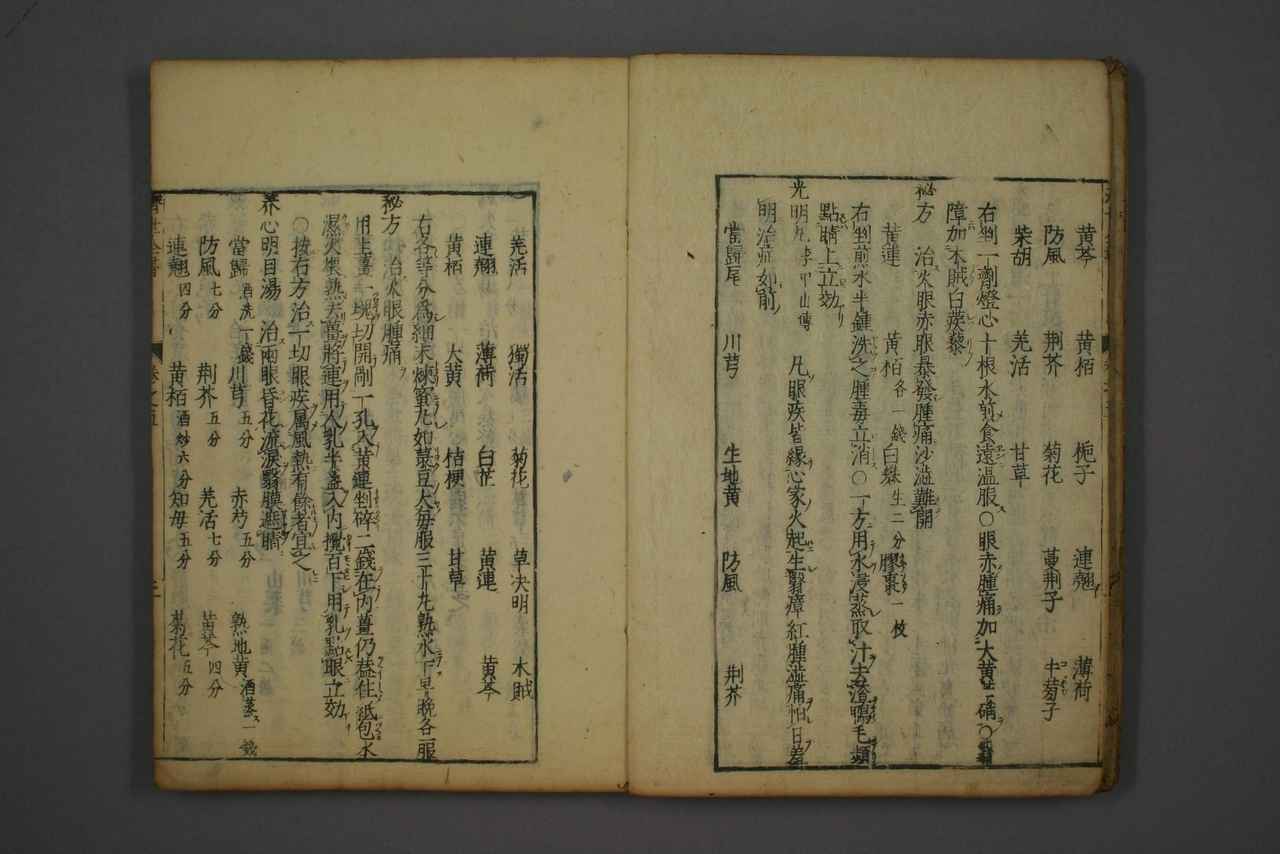 黄芩 黄栢 梔子 連翹 薄荷
防風 荆芥 菊花 蔓荆子 牛蒡子
柴胡 羌活 甘草
右剉一劑燈心十根水煎食遠温服〇眼赤腫痛加大黄芒硝〇翳
障加木賊白蒺藜
秘方 治火眼赤眼暴發腫痛沙澁難開
黄連 黄栢各一錢 白礬生二分 膠棗一枚
右剉煎水半鍾洗之腫毒立消〇一方用水浸蒸取汁去渣鴨毛蘸
點睛上立効
光明丸李甲山傳 凡眼疾皆縁心家火起生翳瘴紅腫澁痛怕日羞
明治症如前
當歸尾 川芎 生地黄 防風 荆芥
羌活 獨活 菊花 草决明 木賊
連翹 薄荷 白芷 黄連 黄芩
黄栢 大黄 桔梗 甘草
右各等分爲細末煉蜜丸如菉豆大毎服三十丸熟水下早晩各一服
秘方 治火眼腫痛
用生薑一塊切開剮一孔入黄連剉碎二錢在内薑仍葢住紙包水
濕火煨熟去薑將連用人乳半盞入内攪百下用乳點眼立効
〇按右方治一切眼疾属風熱有餘者宜之
養心明目湯 治兩眼昏花流淚翳膜遮睛
當歸酒洗一錢 川芎五分 赤芍五分 熟地黄酒蒸一錢
防風七分 荆芥五分 羌活七分 黄芩四分
連翹四分 黄栢酒炒六分 知母五分 菊花五分